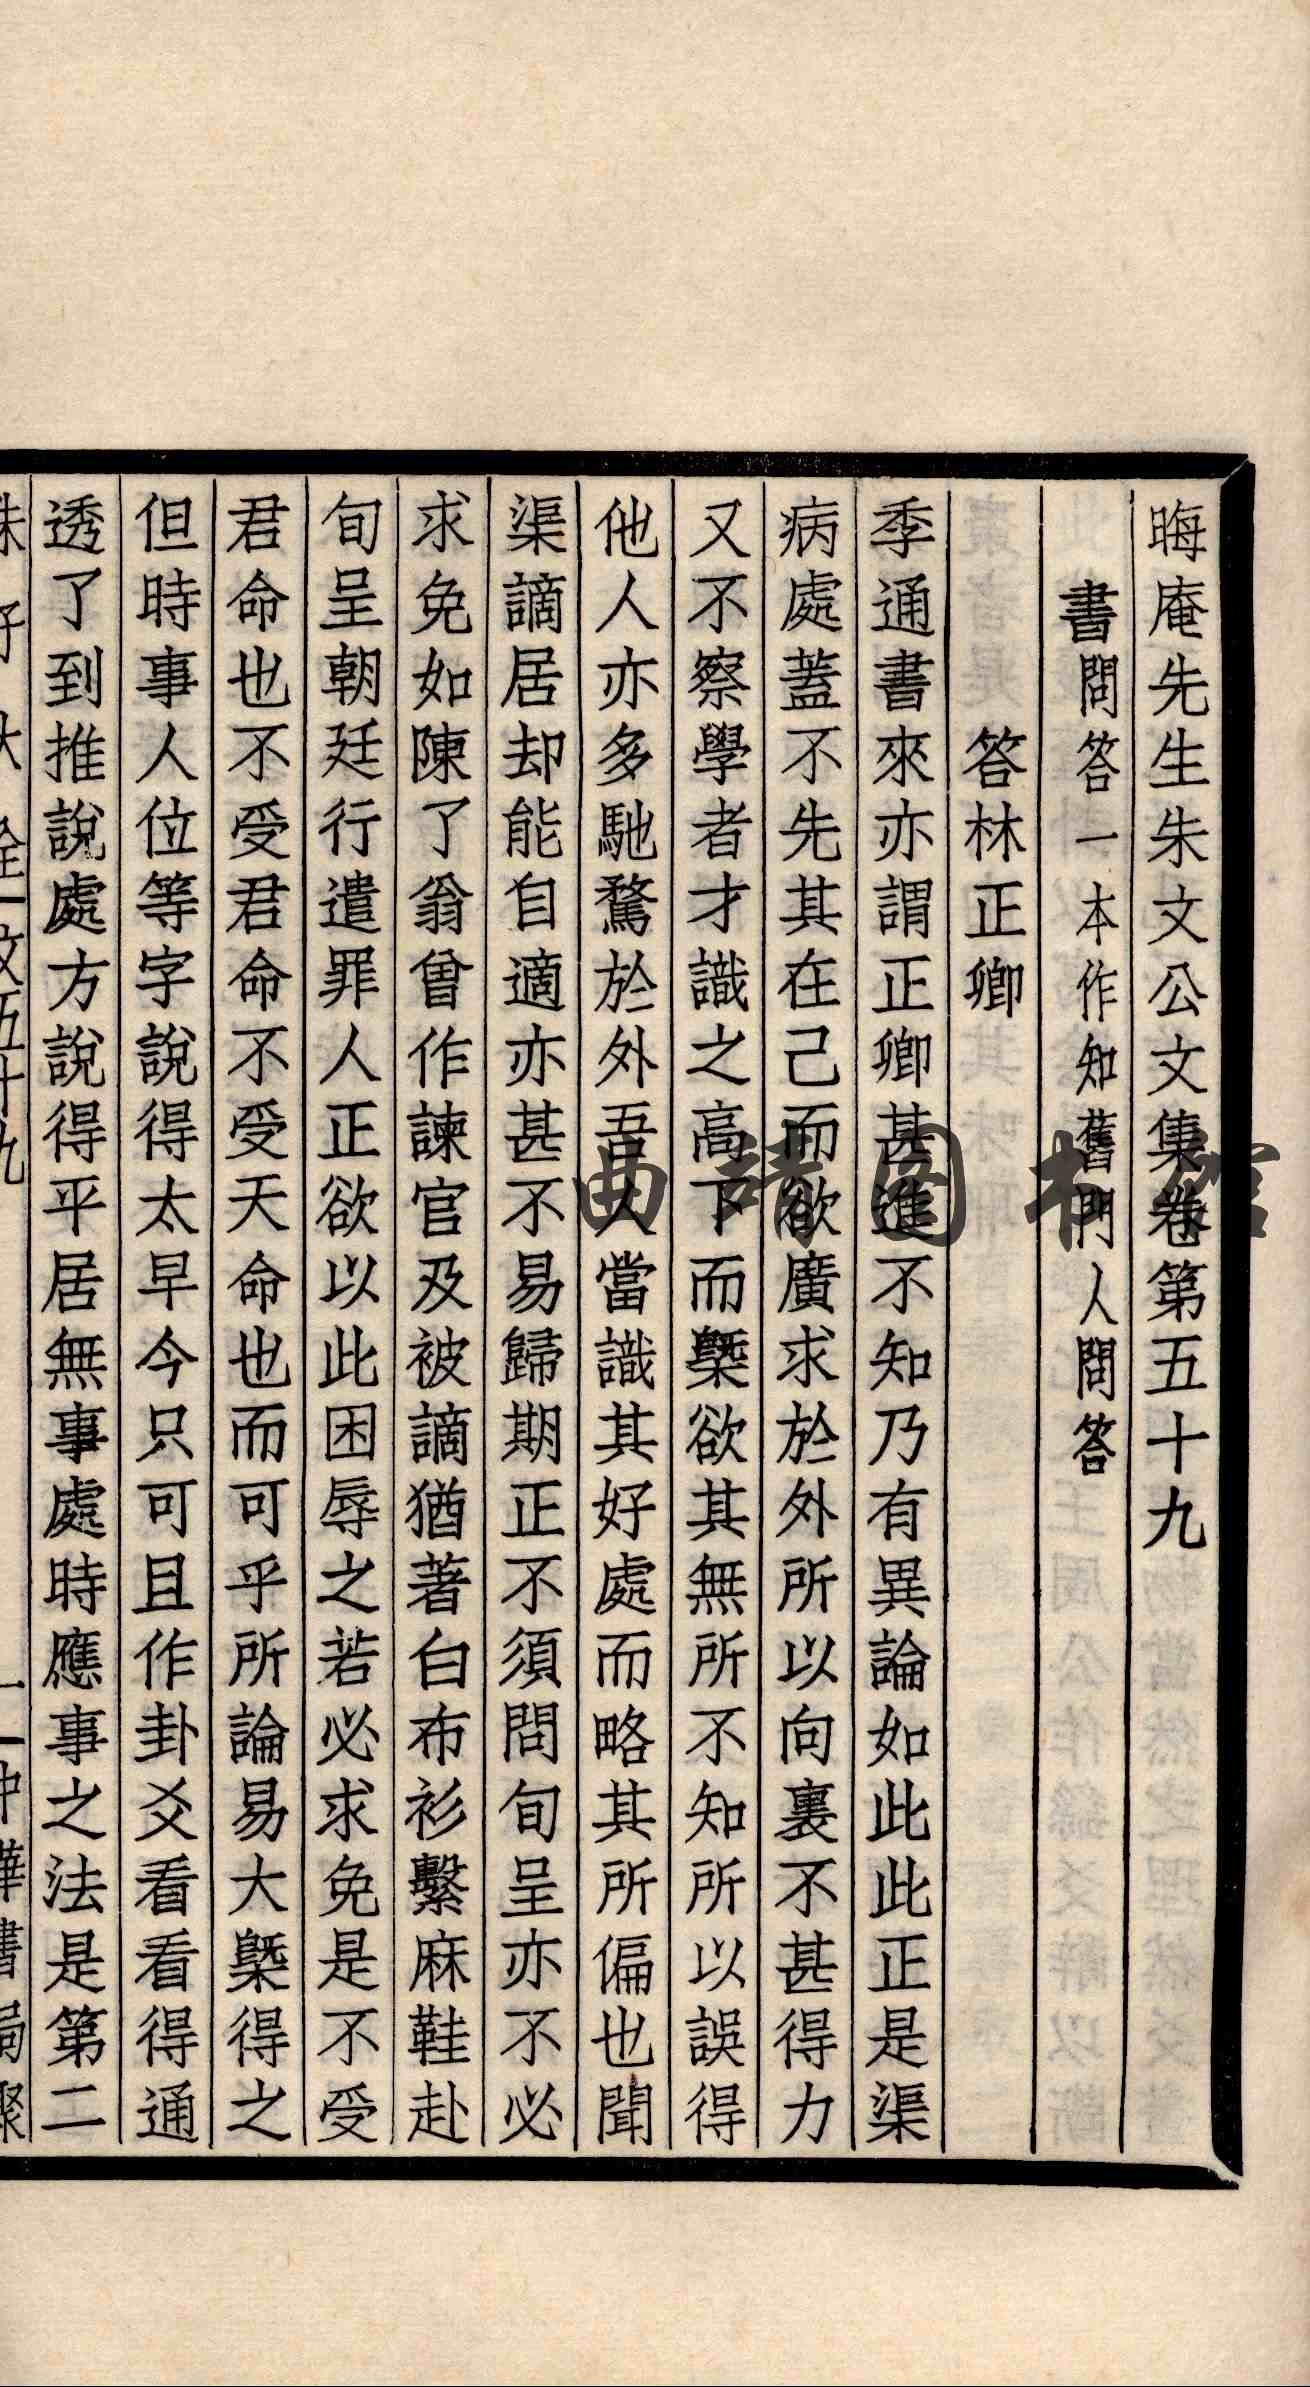 晦庵先生朱文公文集卷第五十九
書問答一本作知舊門人問答
答林正卿
季通書來亦謂正卿甚進不知乃有異論如此此正是渠
病處蓋不先其在己而欲廣求於外所以向裏不甚得力
又不察學者才識之高下而槩欲其無所不知所以誤得
他人亦多馳騖於外吾人當識其好處而略其所偏也聞
渠謫居却能自適亦甚不易歸期正不須問旬呈亦不必
求免如陳了翁曾作諫官及被謫猶著白布衫繫麻鞋赴
旬呈朝廷行遣罪人正欲以此困辱之若必求免是不受
君命也不受君命不受天命也而可乎所論易大槩得之
但時事人位等字說得太早今只可且作卦爻看看得通
透了到推說處方說得平居無事處時應事之法是第二
朱子大全 文五十九 一 中華書局聚
曲靖图书馆